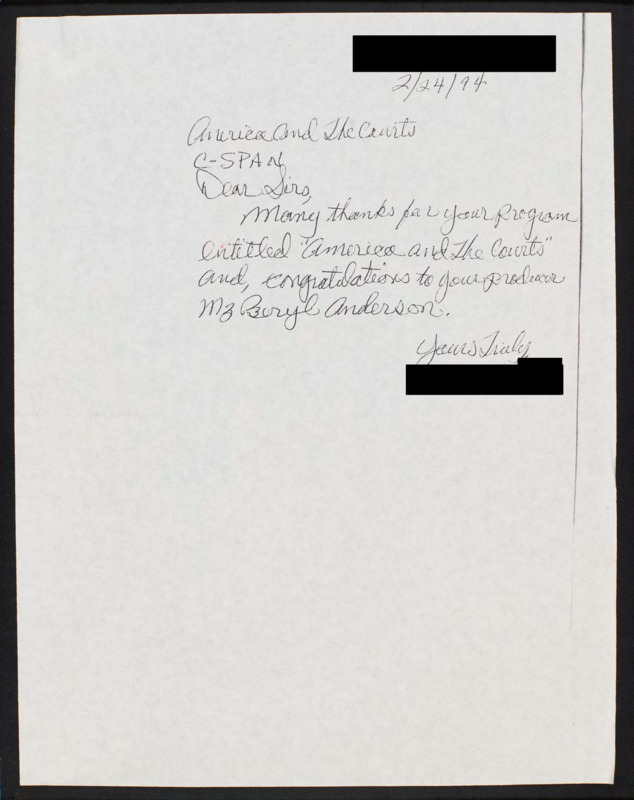 2/24/94
America and The Courts
C-SPAN
Dear Sirs,
Many thanks for your program
entitled "America and The Courts"
and, congratulations to your producer
Mz Beryl Anderson.
Yours Truly